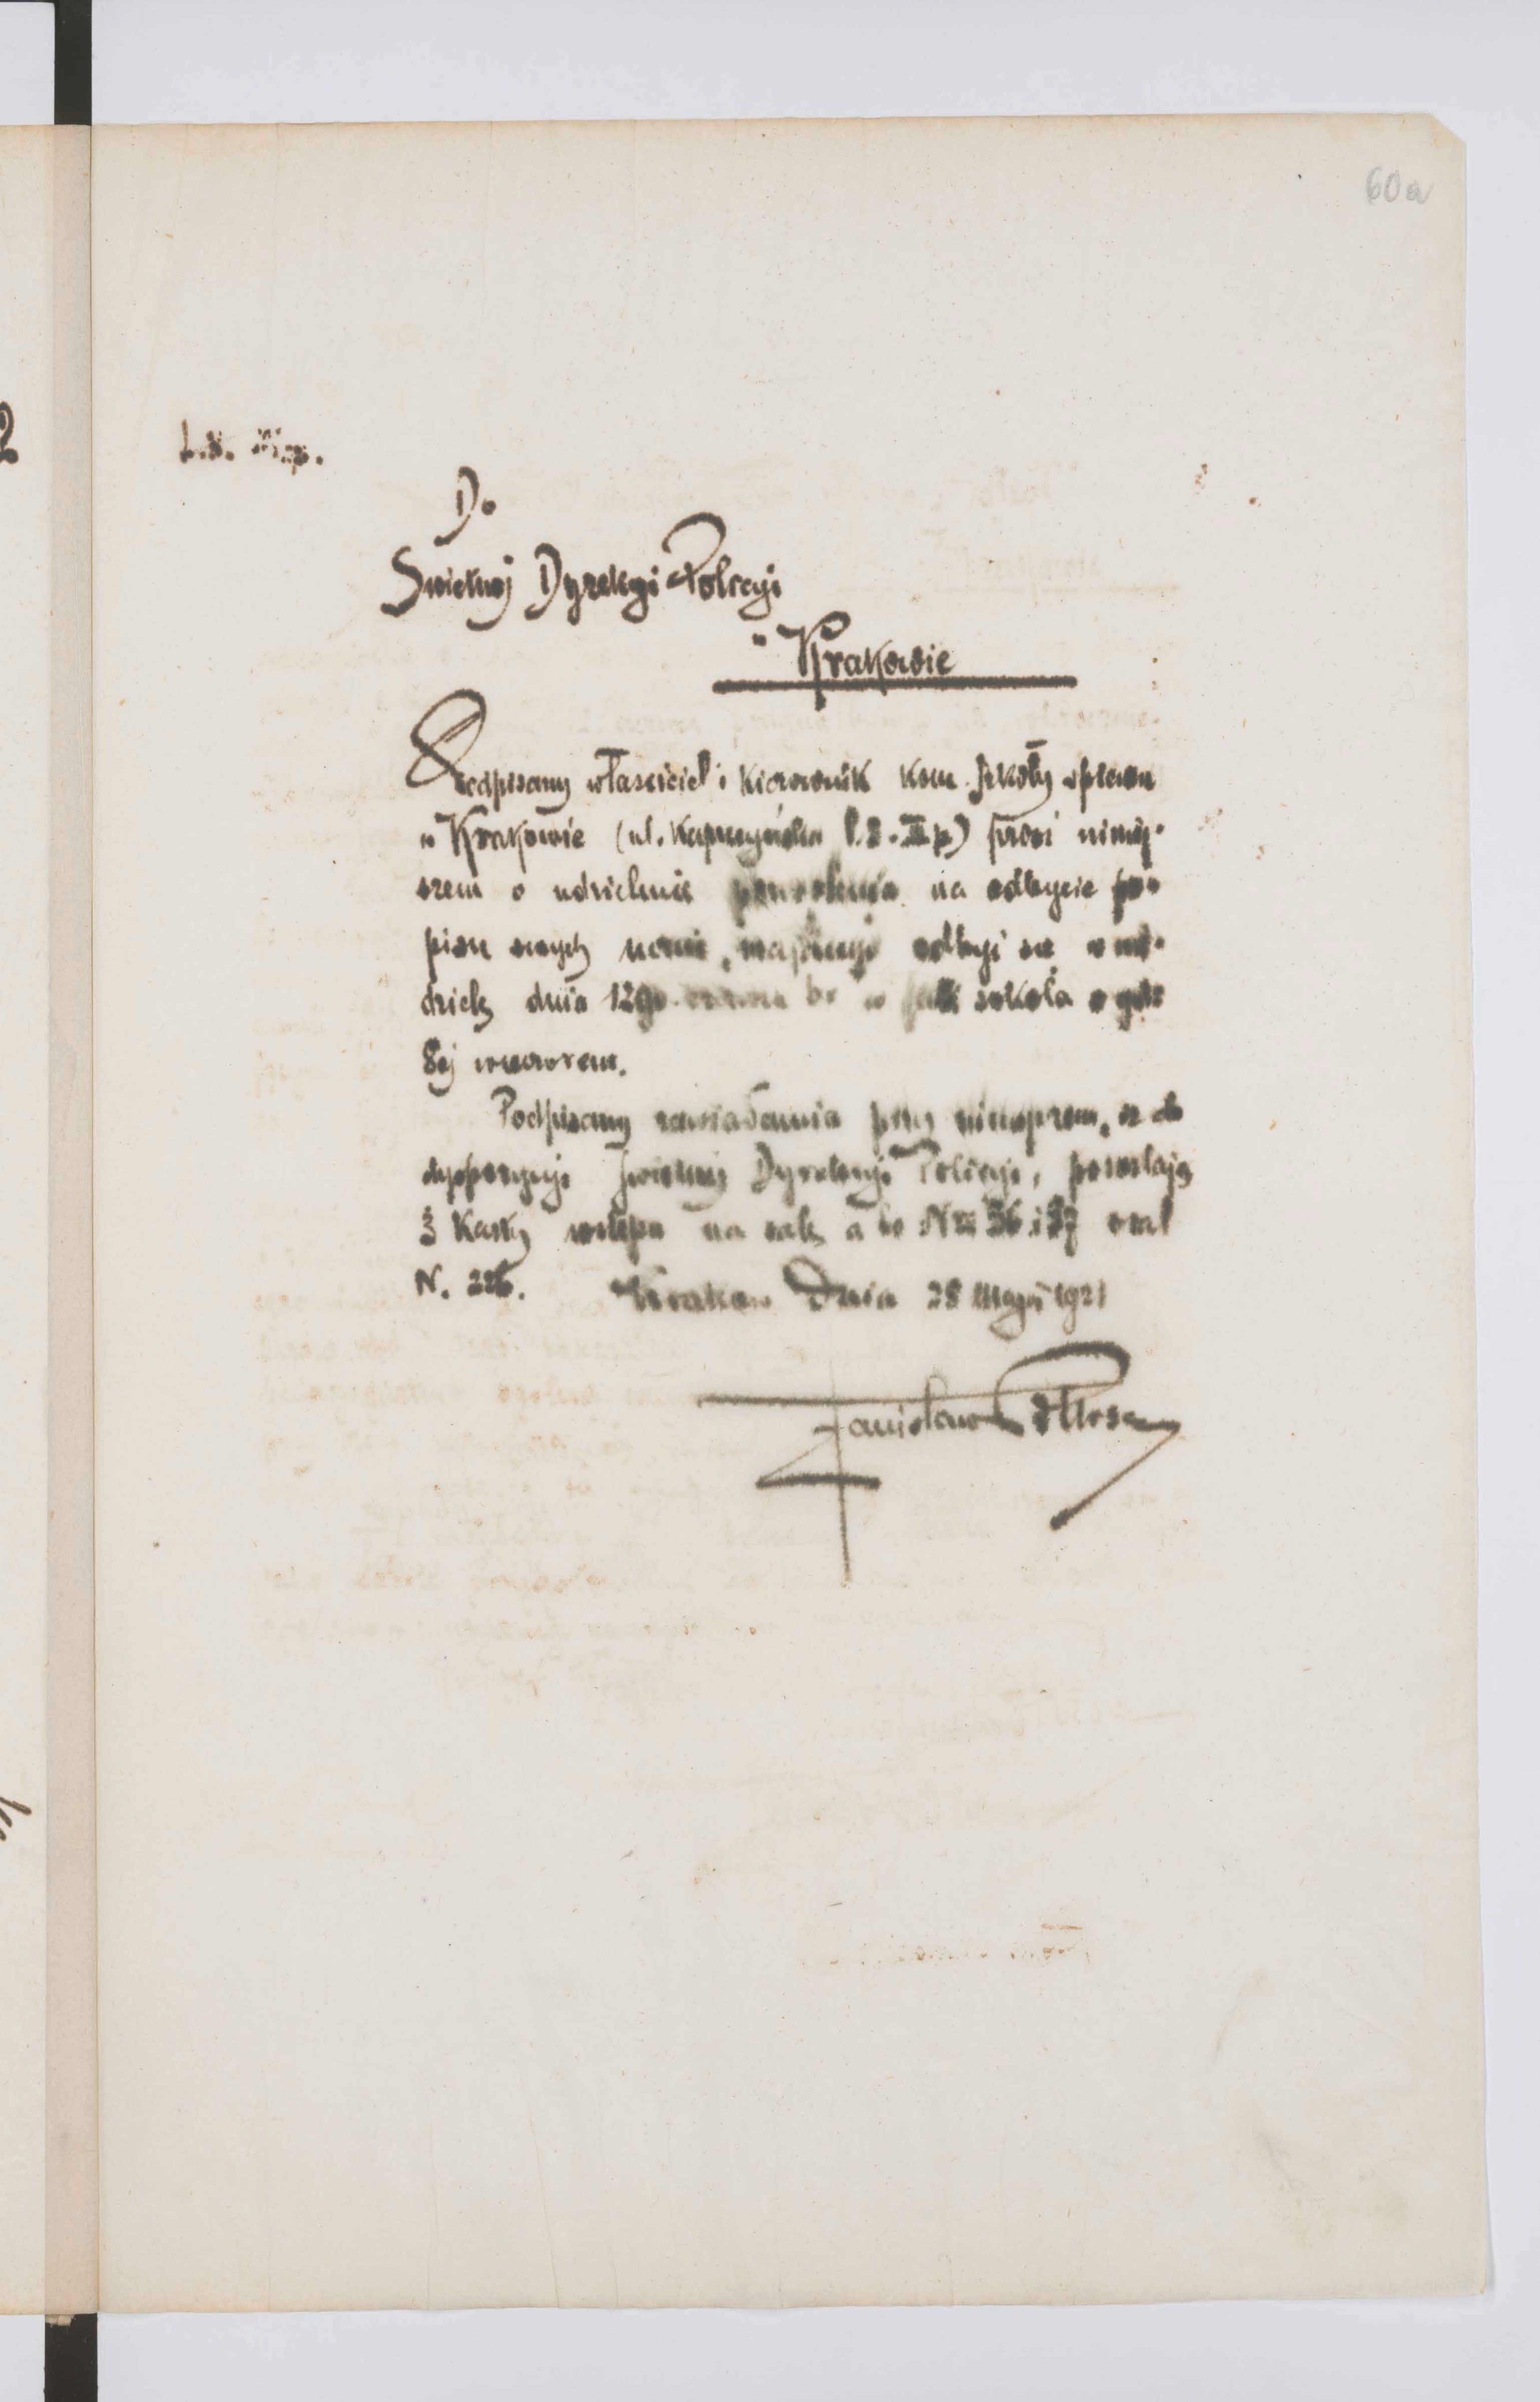 60a
Do
Swietnej Dyrekcyi Policyi
w Krakowie
Podpisany właściciel i kierownik kom. szkoły śpiewu
w Krakowie (ul. Kapucyńska l. 8. III p) prosi niniej-
szem o udzielenie pozwolenia na odbycie po-
pisu swych uczni, mającego odbyć się w nie-
dzielę dnia 12go czerwca br w sali sokoła o godz
8ej wieczorem.
Podpisany zawiadamia przy niniejszem, że do
dyspozycyi Swietnej Dyrekcyi Policyi, pozostają
3 karty wstępu na salę a to Nra 36 i 37 oraz
N. 226. Kraków Dnia 28 Maja 1921
Stanisław